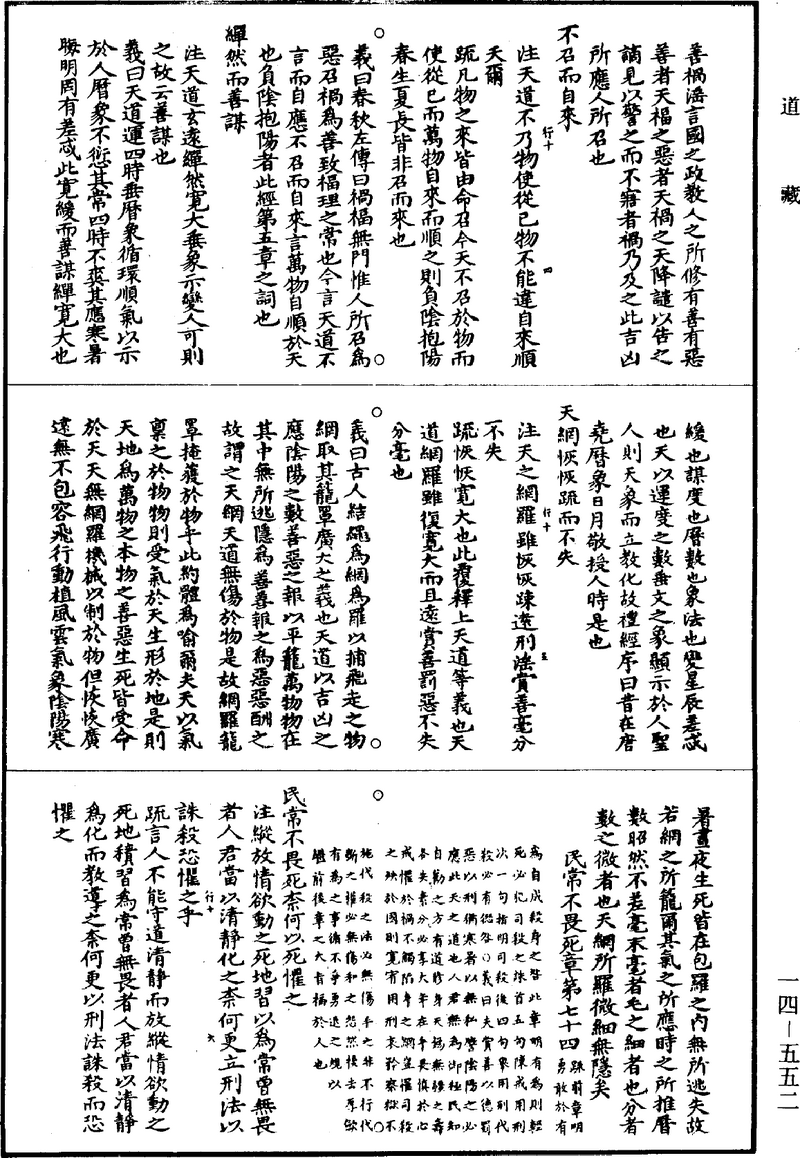 道藏
善禍淫言國之政教人之所修有善有惡
善者天福之惡者天禍之天降譴以告之
謫見以警之而不寤者禍乃及之此吉凶
所應人所召也
不召而自來
注天道不乃物使從己物不能違自來順
天爾
疏凡物之來皆由命召今天不召於物而
使從已而萬物自來而順之則負陰抱陽
春生夏長皆非召而來也
義曰春秋左傳曰禍福無門惟人所召為
惡召禍為善致福理之常也今言天道不
言而自應不召而自來言萬物自順於天
也負陰抱陽者此經第五章之詞也
繟然而善謀
注天道玄遠繟然寬大垂象示變人可則
之故云善謀也
義曰天道運四時垂曆象循環順氣以示
於人曆象不愆其常四時不爽其應寒暑
晦明罔有差忒此寬緩而善謀繟寬大也
緩也謀度也曆數也象法也變星辰差忒
也天以運度之數垂文之象顯示於人聖
人則天象而立教化故禮經序曰昔在唐
堯曆象日月敬授人時是也
天網恢恢疏而不失
注天之網羅雖恢恢疎遠刑法賞善毫分
不失
疏恢恢寬大也此覆釋上天道等義也天
道網羅雖復寬大而且遠賞善罰惡不失
分毫也
義曰古人結繩為網為羅以捕飛走之物
網取其籠罩廣大之義也天道以吉凶之
應陰陽之數善惡之報以平籠萬物物在
其中無所逃隱為善善報之為惡惡酬之
故謂之天網天道無傷於物是故網羅籠
罩掩獲於物乎此約體為喻爾夫天以氣
稟之於物物則受氣於天生形於地是則
天地為萬物之本物之善惡生死皆受命
於天天無網羅機械以制於物但恢恢廣
遠無不包容飛行動植風雲氣象陰陽寒
暑晝夜生死皆在包羅之內無所逃失故
若網之所籠爾其氣之所應時之所推曆
數昭然不差毫末毫者毛之細者也分者
數之微者也天網所羅微細無隱矣
民常不畏死章第七十四
疏前章明
勇敢於有
為自成殺身之咎此章明有為則輕
死必犯司殺之誅首五句陳戒用刑
次一句指明司殺後四句舉用刑代
殺必有傷各義曰夫賞善以德罰
惡以刑猶寒暑以無私譬陰陽之必
應此天之道也人君無為御極民知
自勤之方有道修身天錫無疆之壽
各矢素分必享大年在乎畏慎於心
戒懼於禍不觸陷身之網豈罹司殺
之殃於國則寬宥用刑哀矜察獄不
施代殺之法必無傷手之非不行代
斲之罪必無傷和之怨然後去厚斂
有為之事循不爭勇退之規以
繼前後章之大旨福於人也
民常不畏死奈何以死懼之
注縱放情欲動之死地習以為常曾無畏
者人君當以清靜化之奈何更立刑法以
誅殺恐懼之乎
疏言人不能守道清靜而放縱情欲動之
死地積習為常曾無畏者人君當以清靜
為化而教導之奈何更以刑法誅殺而恐
懼之
一四—五五二